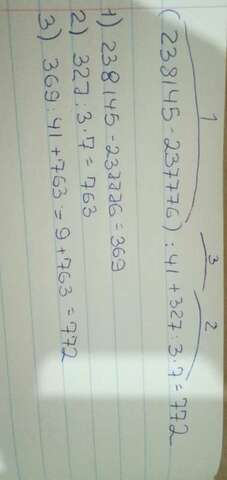 1 3 2
(238145-237776):41+327:3·7=772
1) 238145-237776=369
2) 327:3·7=763
3) 369:41+763=9+763=772